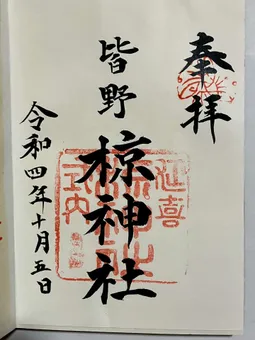 奉拝
皆野
椋神社
延喜
式内
令和四年十月五日